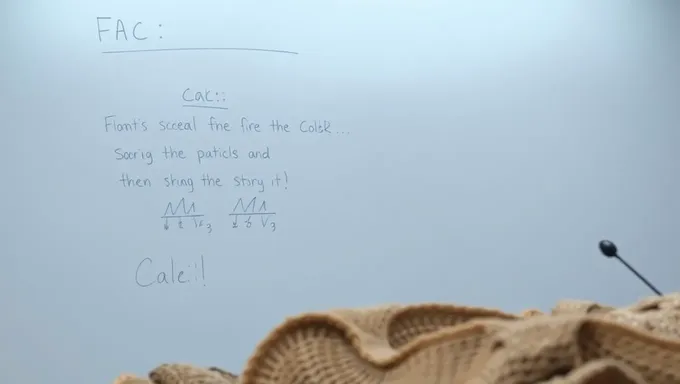 FAC:
Cac::
Fiont's sceeal fne fire the Colsk...
Socrig the paticls and
then sking the story it!
Cale!!!